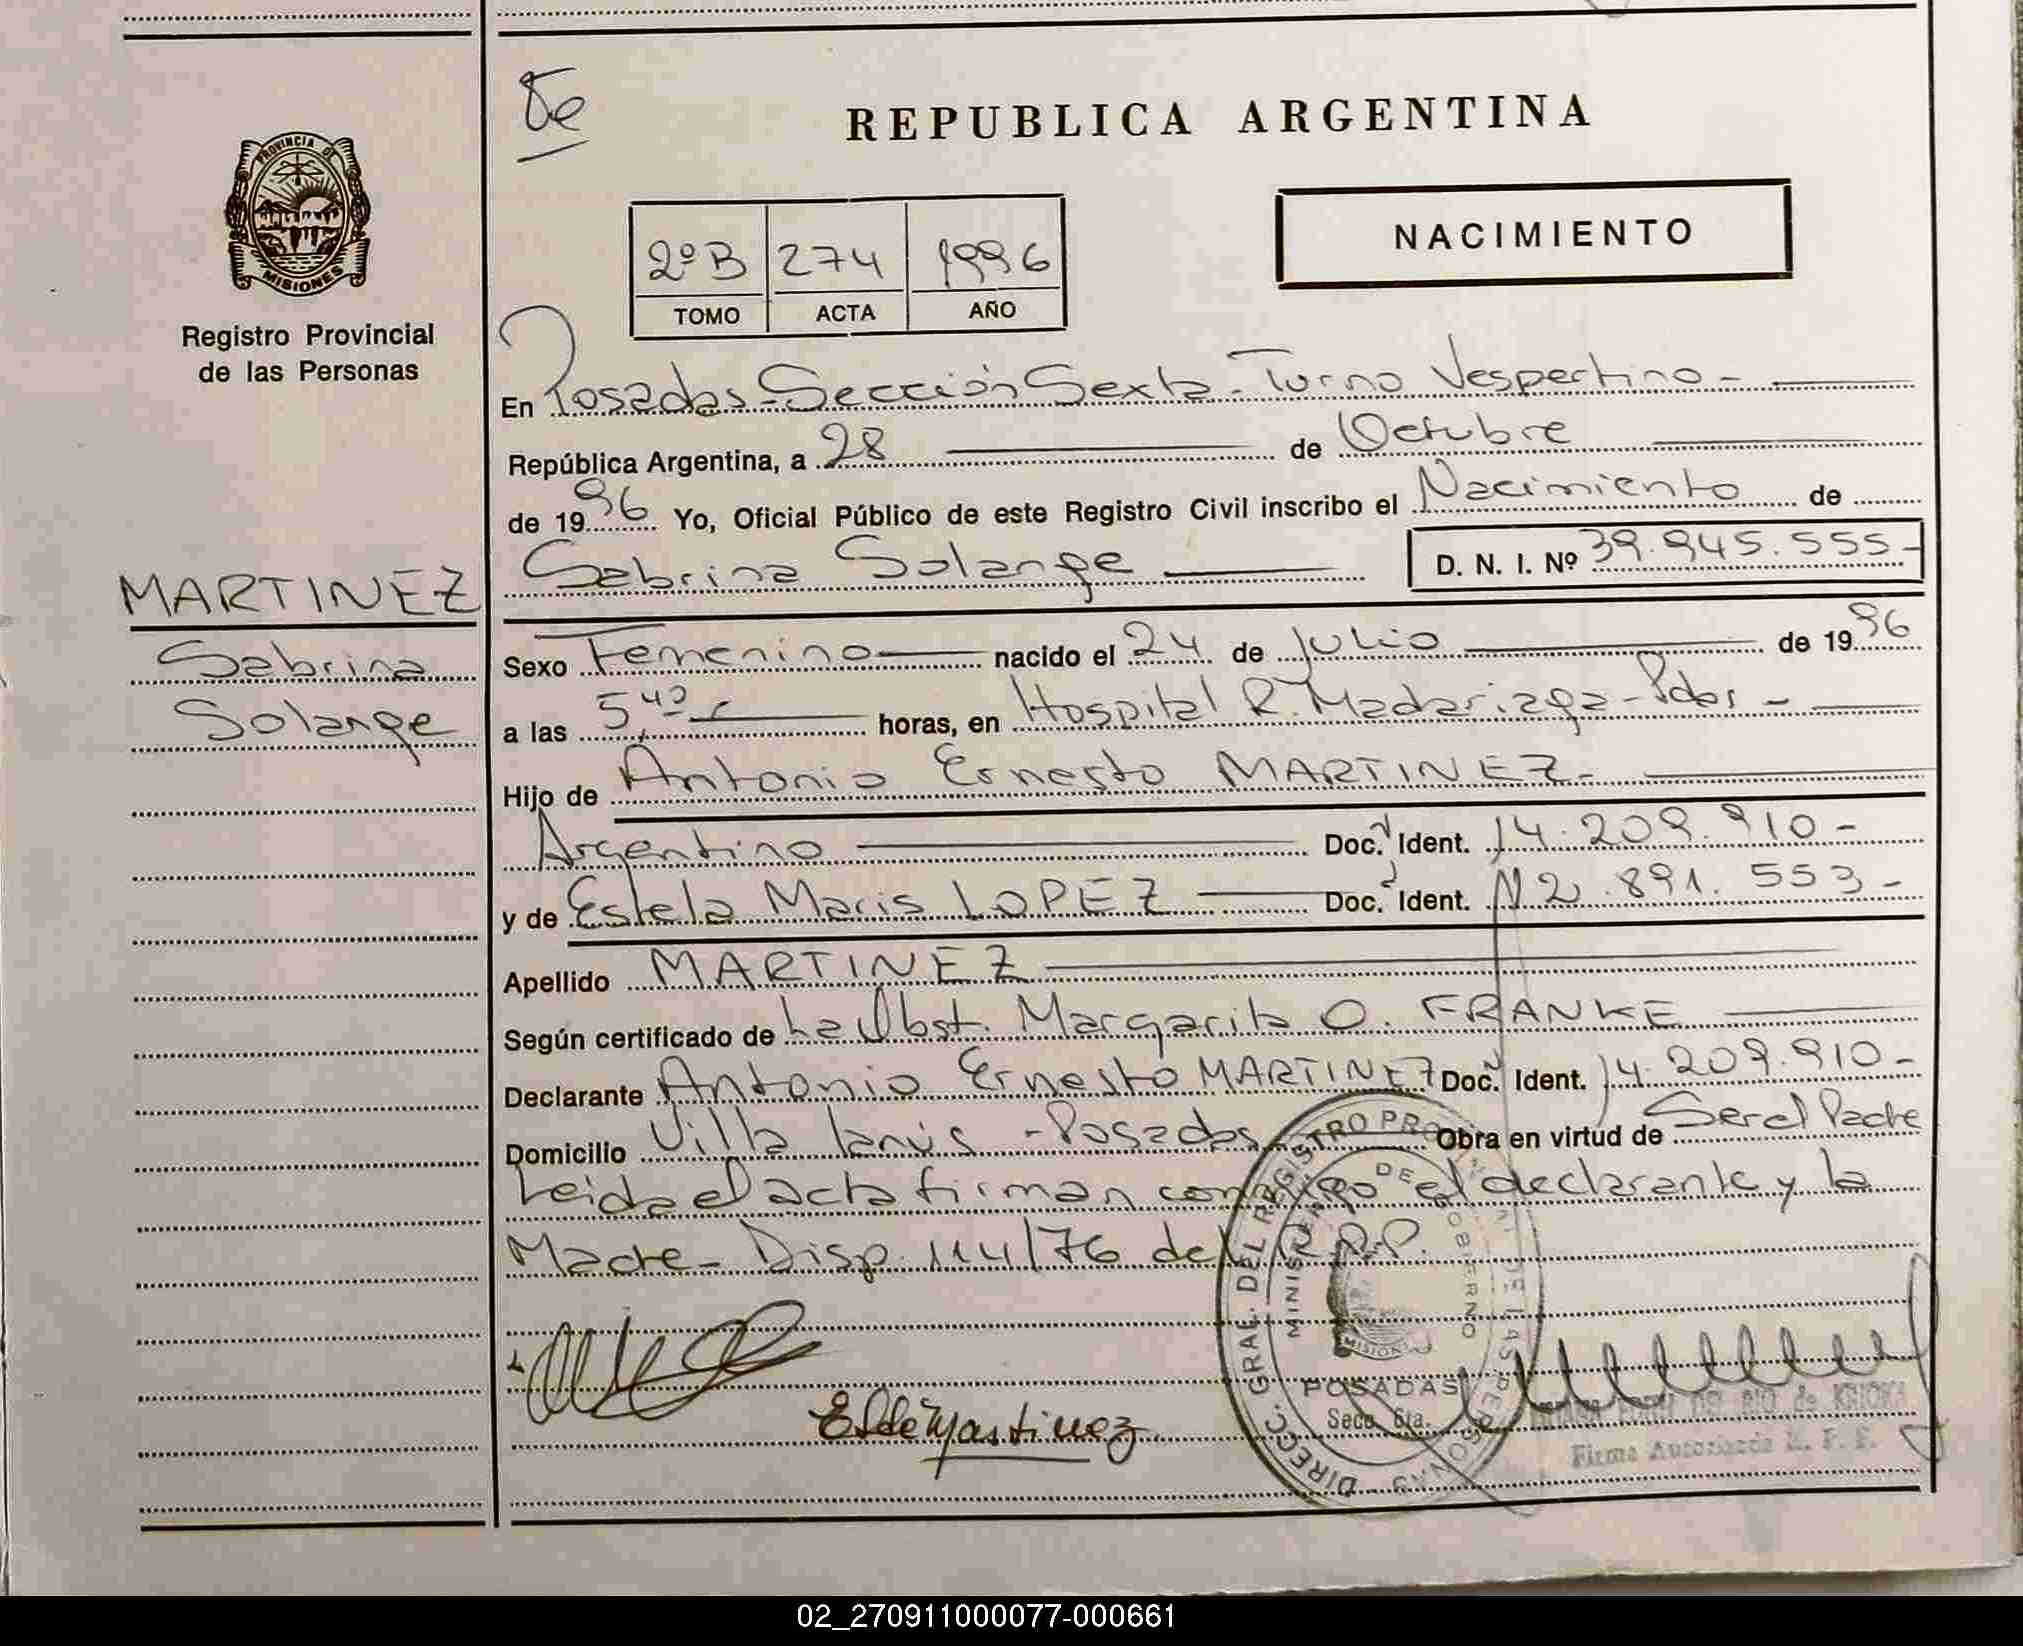 De
REPUBLICA ARGENTINA
PROVINCIA DE
MISIONES
Registro Provincial
de las Personas
2º B 274 1996
TOMO ACTA AÑO
NACIMIENTO
En Posadas-Sección Sexta-Turno Vespertino-
República Argentina, a 28 de Octubre
de 1996 Yo, Oficial Público de este Registro Civil inscribo el Nacimiento de
Sabrina Solange D. N. I. Nº 39.945.555-
MARTINEZ
Sabrina
Solange
Sexo Femenino nacido el 24 de Julio de 1996
a las 5,40 horas, en Hospital R. Madariaga-Pdas-
Hijo de Antonio Ernesto MARTINEZ-
Argentino Doc. Ident. 14.209.910-
y de Estela Maris LOPEZ Doc. Ident. 12.891.553-
Apellido MARTINEZ
Según certificado de La Obst. Margarita O. FRANKE
Declarante Antonio Ernesto MARTINEZ Doc. Ident. 14.209.910-
Domicilio Villa Lanús -Posadas Obra en virtud de Ser el Padre
Leida el acta firman conmigo el declarante y la
Madre- Disp. 114/76 del R.P.P.
E L de Martinez
DIRECC. GRAL. DEL REGISTRO PROVINCIAL DE LAS PERSONAS
MINISTERIO DE GOBIERNO
MISIONES
POSADAS
Secc. 6ta.
DEL RIO de KRIOKA
Firma Autorizada R. P. P.
02_270911000077-000661